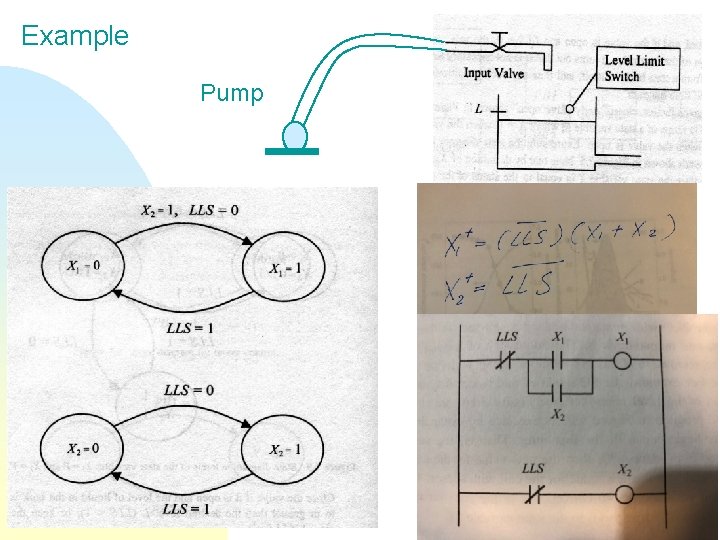 Example
Pump
Input Valve
Level Limit
Switch
L
X₂ = 1, LLS = 0
X₁ = 0
X₁ = 1
LLS = 1
LLS = 0
X₂ = 0
X₂ = 1
LLS = 1
X₁⁺ = (L̅L̅S̅) (X₁ + X₂)
X₂⁺ = L̅L̅S̅
LLS X₁ X₁
X₂
LLS X₂